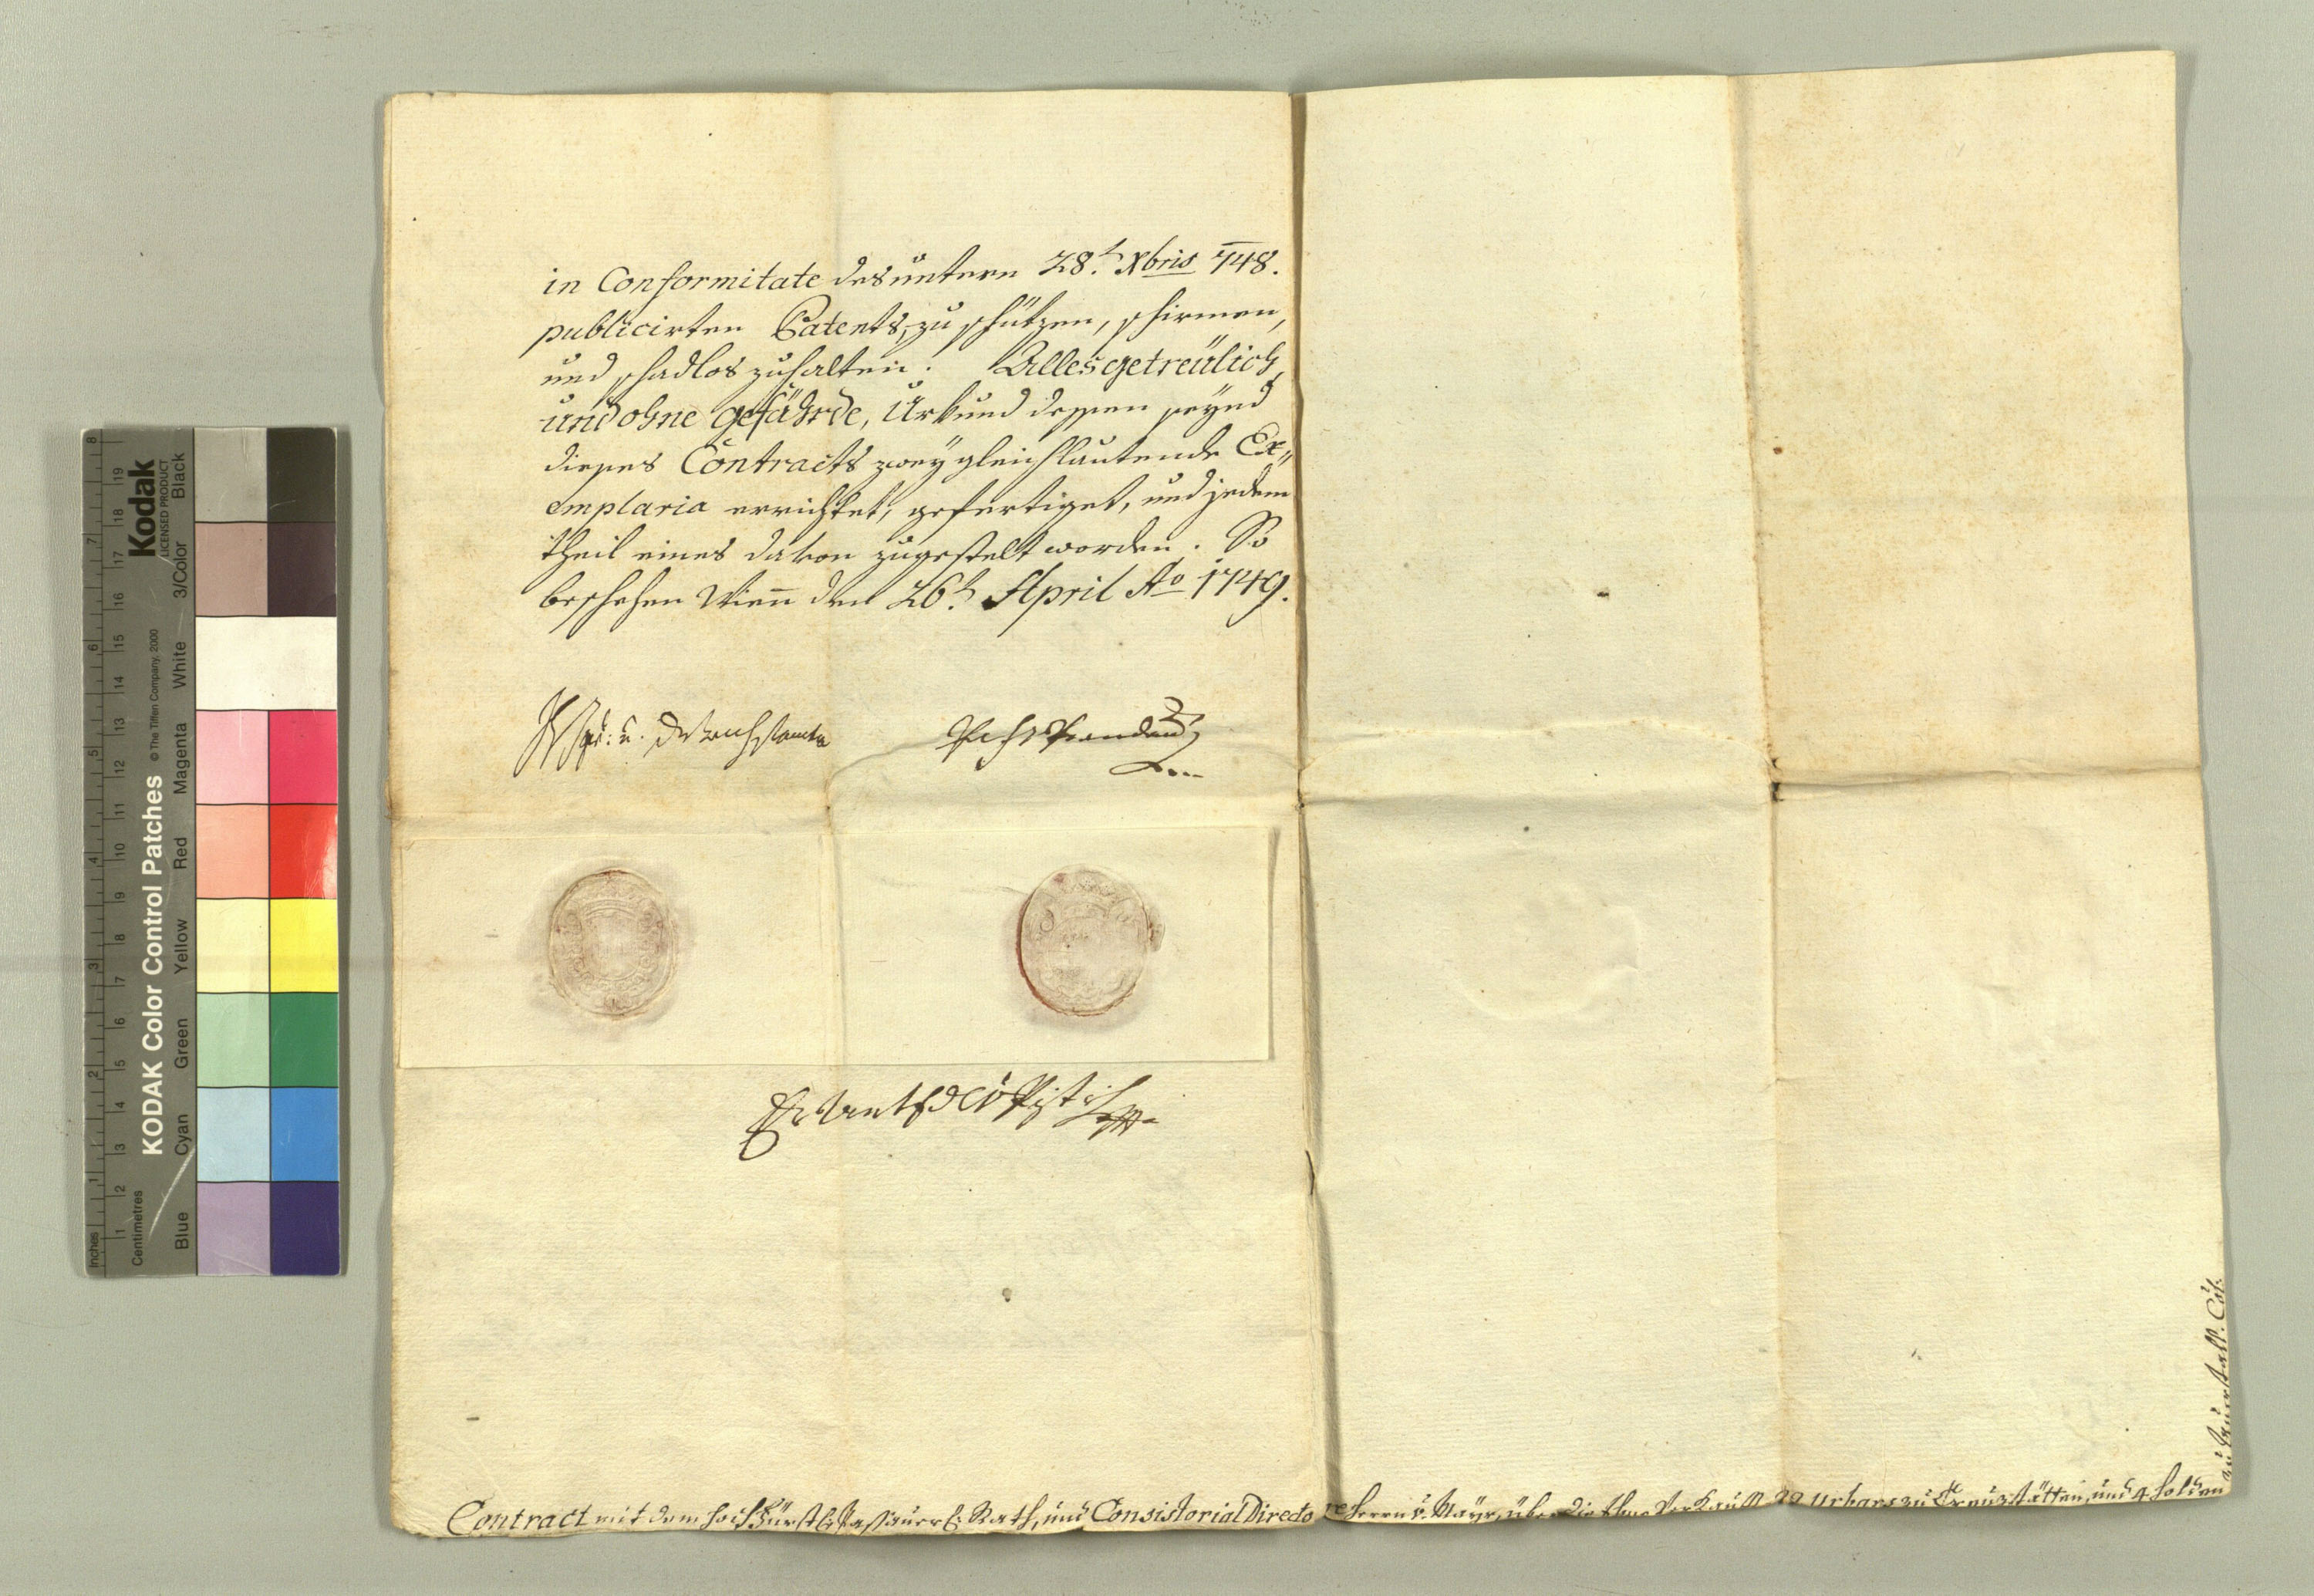 in Conformitate des untern 28.t Xbris 748.
publicirten Patents, zu schützen, schirmen,
und schadlos zuhalten. Alles getreülich,
und ohne gefährde, Urkund dessen seynd
dieses Contracts zwey gleichlautende Ex„
emplaria errichtet, gefertiget, und jedem
theil eines davon zugestelt worden. So
beschehen Wienn den 26.t April Ao 1749.
Contract mit dem hochfürstl: Passauerl: Rath, und Consistorial Directore Herrn v. Mayr, über die Verkauffte 29 Urbare zu Creuzstätten, und 4 holden
KODAK Color Control Patches
© The Tiffen Company, 2000
Kodak
LICENSED PRODUCT
Inches
Centimetres
Blue
Cyan
Green
Yellow
Red
Magenta
White
3/Color
Black
1 2 3 4 5 6 7 8
1 2 3 4 5 6 7 8 9 10 11 12 13 14 15 16 17 18 19